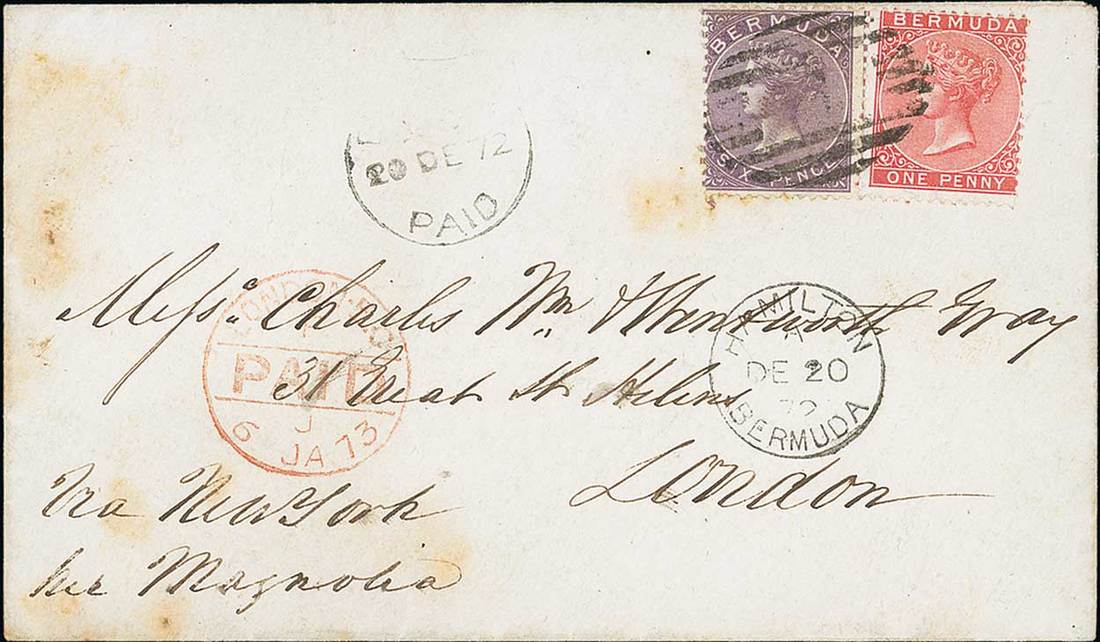 BERMUDA
SIX PENCE
BERMUDA
ONE PENNY
20 DE 72
PAID
HAMILTON
A
DE 20
72
BERMUDA
LONDON
PAID
J
6 JA 73
Messrs. Charles Wm & Wentworth Gray
31 Great St Helens
London
Via New York
per Magnolia